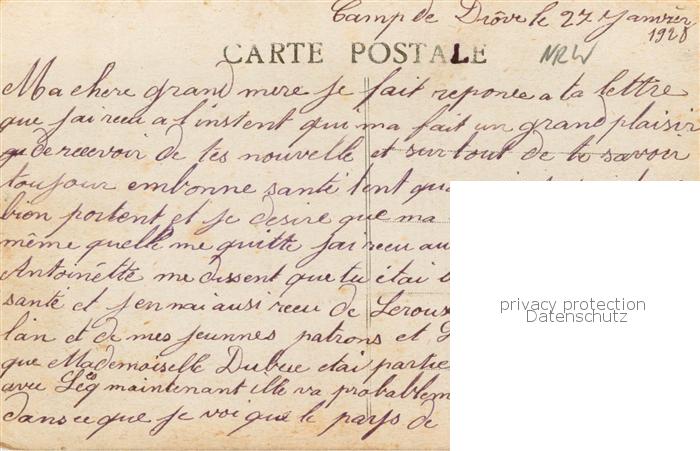 Camp de Drôve le 27 Janvier
1928
CARTE POSTALE
NRW
Ma chere grand mere je fait reponce a ta lettre
que jai recu a l'instent qui ma fait un grand plaisir
de recevoir de tes nouvelle et surtout de te savoir
toujour embonne santé tent
bien portent et je desire que ma
même quelle me quitte jai recu au
Antoinétte me dissent que tu étai
santé et jen nai ausi recu de Leroux
lan et de mes jeunnes patrons et
que Mademoiselle Dubuc etai partie
avec Leq maintenant ille va probablem
dans ce que je voi que le pays de
privacy protection
Datenschutz